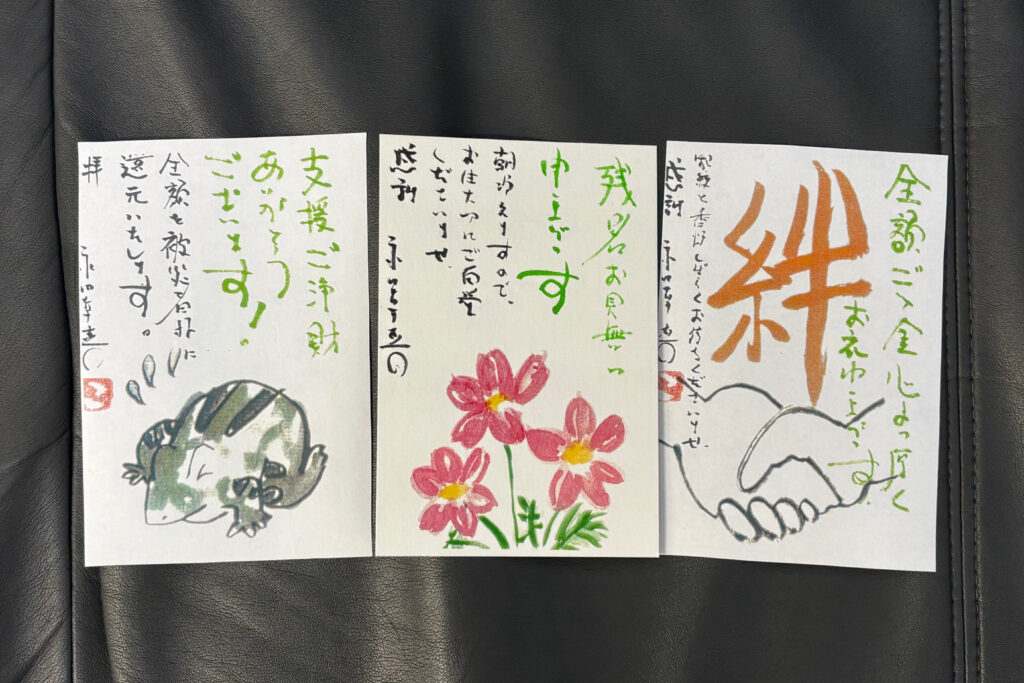 支援ご浄財
ありがとう
ございます!。
全額を被災者様に
還元いたします。
拝
残暑お見舞い
申し上げます
朝夕冷えますので、
お体大切にご自愛
くださいませ
感謝
全額ご入金心より厚く
お礼申し上げます
絆
しばらくお待ちくださいませ
感謝